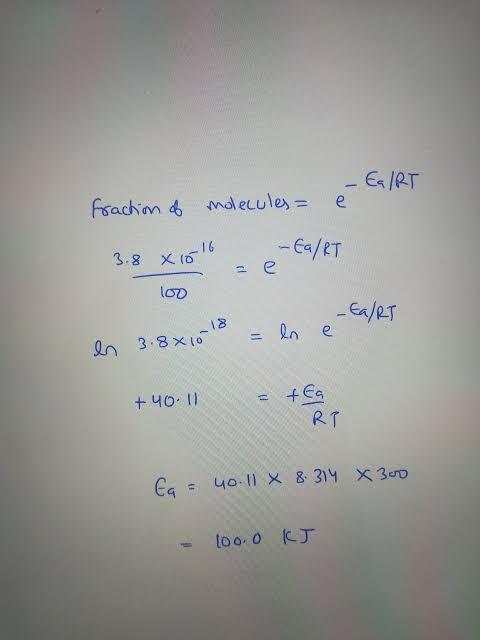 fraction of molecules = e^{-Ea/RT}
3.8 × 10^{-16} / 100 = e^{-Ea/RT}
ln 3.8×10^{-18} = ln e^{-Ea/RT}
+40.11 = +Ea/RT
Ea = 40.11 × 8.314 × 300
= 100.0 KJ